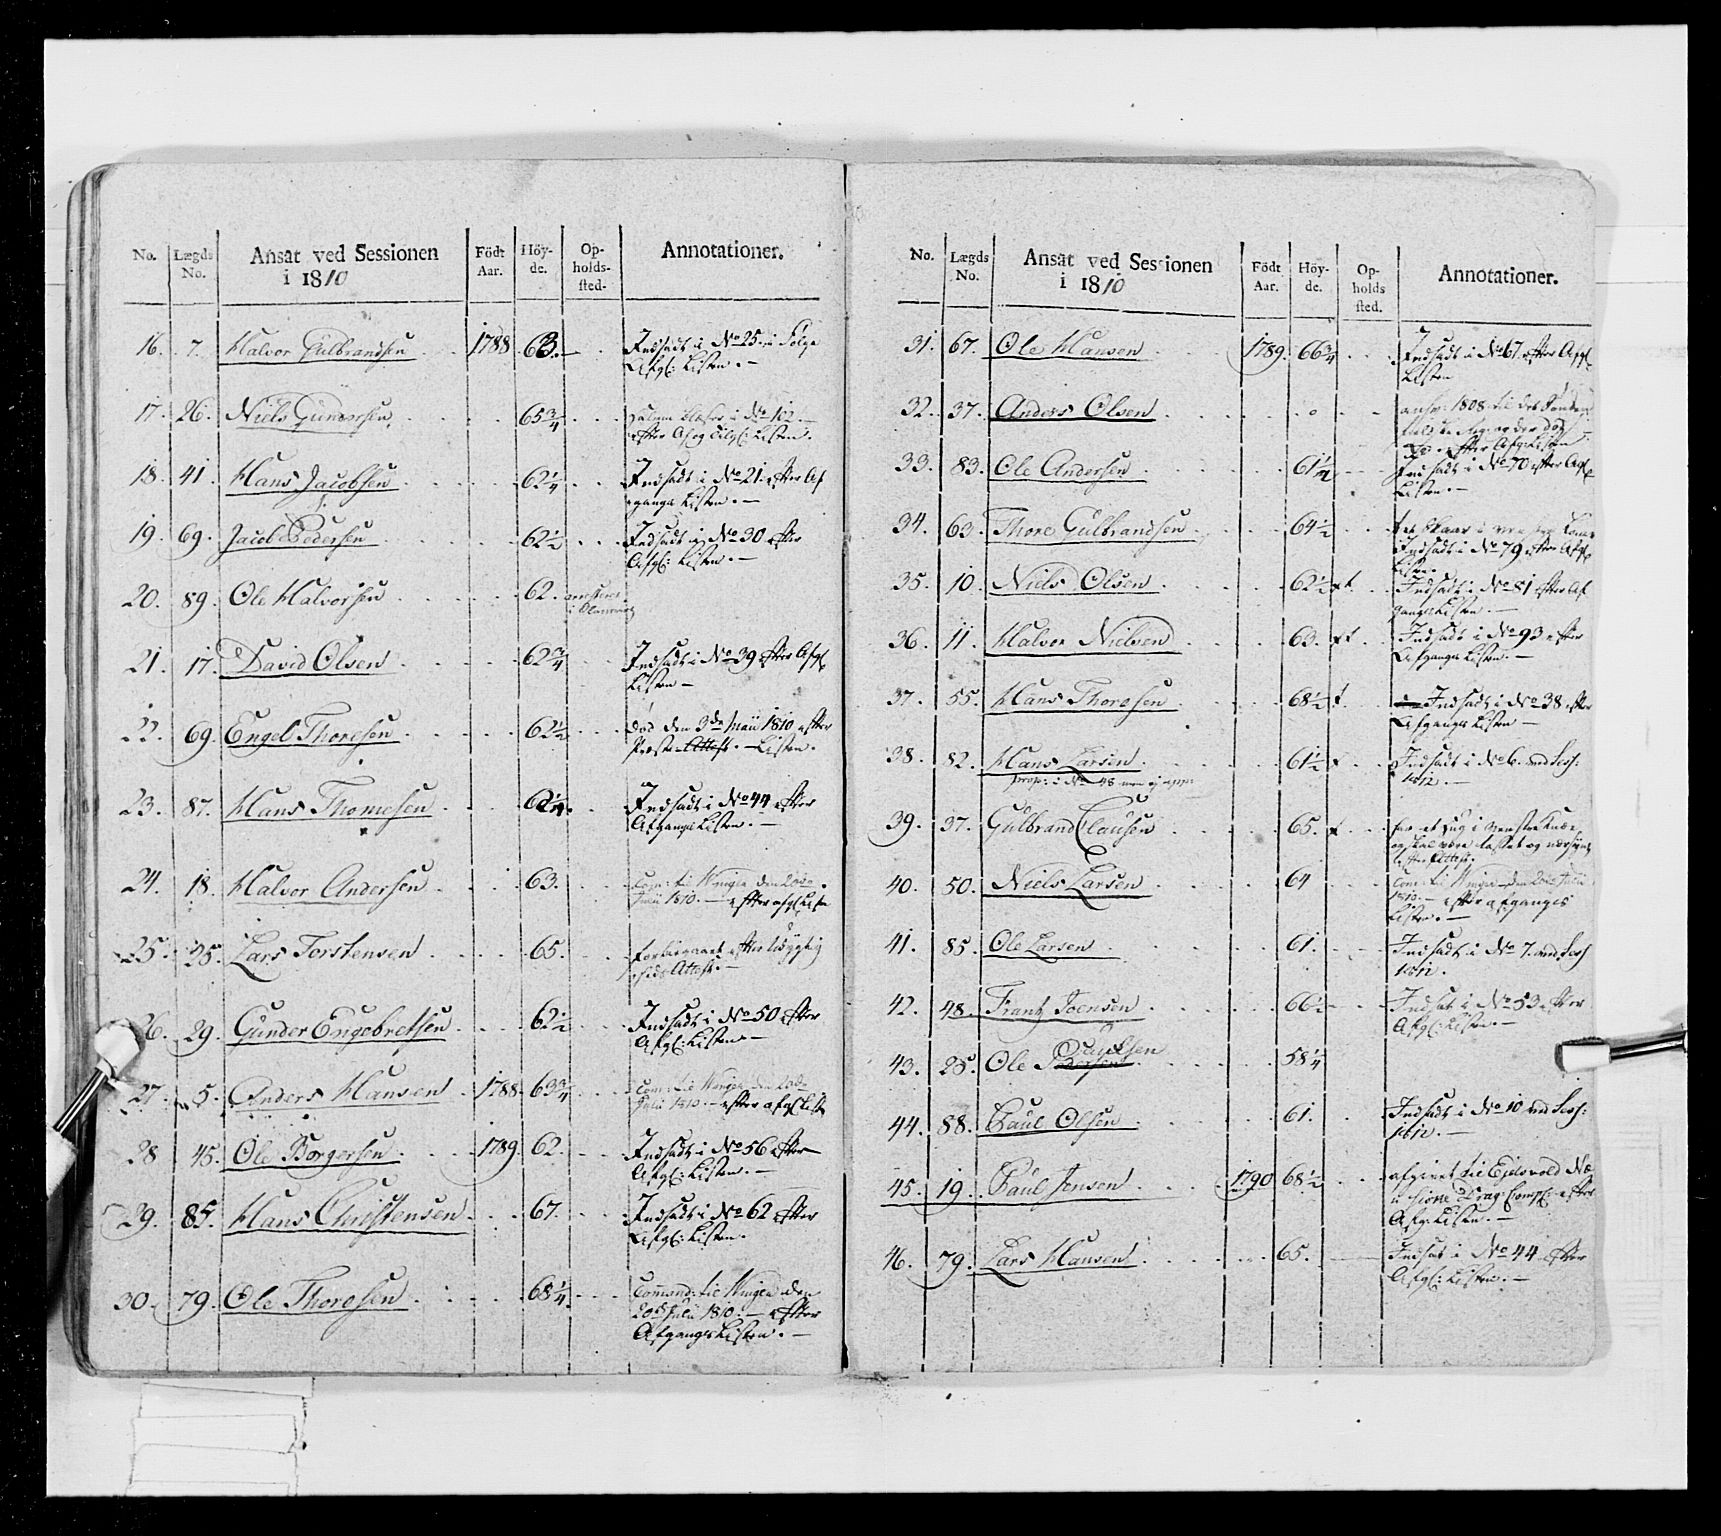 No. Lægds No. Ansat ved Sessionen i 1810 Födt Aar. Höy-de. Op-holds-sted. Annotationer.
16. 7. Halvor Gulbrandsen 1788 63. Indsadt i No 25. i Følge
Afg: Listen.
17. 26. Niels Gundersen 65 3/4 i No 102.
efter Af og Tilg: Listen.
18. 41. Hans Jacobsen 62 1/4 Indsadt i No 21. efter Af
gangs Listen.
19. 69. Jacob Pedersen 62 1/2 Indsadt i No 30 efter
Afg: Listen.
20. 89. Ole Halvorsen 62. arresteret
i
21. 17. David Olsen 62 3/4 Indsadt i No 39 efter Afg
Listen
22. 69. Engel Thoresen 62 1/2 død den 3de Maii 1810 efter
Præste Attest. Listen.
23. 87. Hans Thomesen Indsadt i No 44 efter
Afgangs Listen.
24. 18. Halvor Andersen 63. Com: til Winger den 20de
Julii 1810. efter afg Listen
25. 35. Lars Torstensen 65. forbigaaet efter Udygtig
heds Attest.
26. 29. Gunder Engebretsen 62 1/2 Indsadt i No 50 efter
Afg: Listen
27. 5. Anders Hansen 1788 63 3/4 Com: til Winger den 20de
Julii 1810. efter afg Liste
28 45. Ole Borgersen 1789. 62. Indsadt i No 56 efter
Afg: Listen.
29. 85. Hans Christensen 67. Indsadt i No 62 efter
Afg: Listen.
30. 79. Ole Thoresen 68 1/4 Commend: til Winger den
20de Julii 1810. efter
Afgangs Listen.
No. Lægds No. Ansat ved Sessionen i 1810 Födt Aar. Höy-de. Op-holds sted. Annotationer.
31. 67. Ole Hansen 1789. 66 3/4 Indsadt i No 67. efter Afg
Listen
32. 37. Anders Olsen 1808 til det
og der død
efter Afg: Listen
33. 83. Ole Andersen 61 1/2 Indsadt i No 70 efter Afg
Listen.
34. 63. Thore Gulbrandsen 64 1/2
Indsadt i No 79 efter Afg
Listen.
35. 10. Niels Olsen 62 1/2 Indsadt i No 81 efter Af
gangs Listen.
36. 11. Halvor Nielsen 63. Indsadt i No 93 efter
Afgangs Listen.
37. 55. Hans Thoresen 68 1/2 Indsadt i No 38 efter
Afgangs Listen
38. 82. Hans Larsen 61 1/2 Indsadt i No 6. ved Sess:
1812.
prop: i No 48 men ej
39. 37. Gulbrand Clausen 65. har et Hug i venstre Knæe
og skal være og nærsynt
efter Attest.
40. 50. Niels Larsen 64 Com: til Winger den 20de Julii
1810. efter afgangs
Listen.
41. 85. Ole Larsen 61. Indsadt i No 7. ved Sess
1812.
42. 48. Frantz Joensen 66 1/2 Indsat i No 53 efter
Afg: Listen.
43. 25. Ole Paulsen 58 1/4
44. 88. Paul Olsen 61. Indsadt i No 10 ved Sess:
1812.
45. 19. Paul Jensen 1790 68 1/2 afgivet til Eidsvold
Drag: Comp: efter
Afg: Listen.
46. 79. Lars Hansen 65. Indsat i No 44 efter
Afg: Listen.